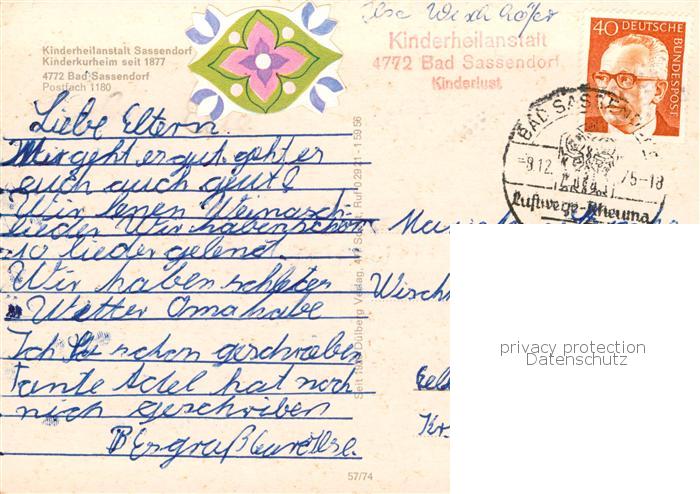 Ilse Wischhöfer
Kinderheilanstalt Sassendorf
Kinderkurheim seit 1877
4772 Bad Sassendorf
Postfach 1180
Kinderheilanstalt
4772 Bad Sassendorf
Kinderlust
40 DEUTSCHE BUNDESPOST
BAD SASSENDORF
-9.12. 75-18
Luftwege-Rheuma
Liebe Eltern.
Mir geht er gut, geht er
euch auch geut?
Wir lenen Weinach-
lieder Wir haben schon
10 lieder gelent.
Wir haben schletes
Wetter Oma habe
Ich schon geschrieben
Tante Adel hat noch
nich geschriben
Ilse.
Wisch
Kr.
Dülberg Verlag, 477 Soest, Ruf 0 29 21 - 1 59 56
57/74
privacy protection
Datenschutz